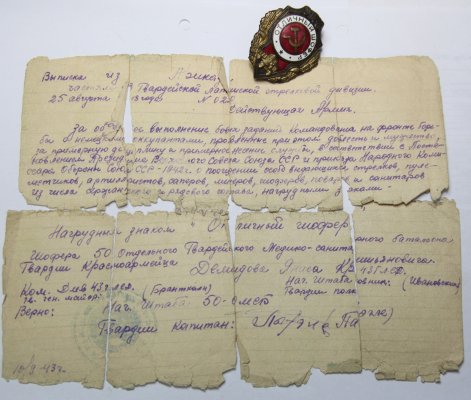 ОТЛИЧНЫЙ ШОФЕР
Выписка из Приказа
частям Гвардейской Латышской стрелковой дивизии.
25 августа 43 года № 022
Действующая Армия.
За образцовое выполнение боевых заданий командования на фронте борьбы
с немецкими оккупантами, проявленные при этом доблесть и мужество,
за примерную дисциплину и примерное несение службы, в соответствии с Поста-
новлением Президиума Верховного Совета Союза ССР и приказу Народного Комис-
сара Обороны Союза ССР 1942г. о поощрении особо выдающихся стрелков, пуле-
метчиков, артиллеристов, саперов, минеров, шоферов, поваров и санитаров
из числа сержантского и рядового состава, нагрудными знаками.
Нагрудным знаком Отличный шофер
Шофера 50 Отдельного Гвардейского Медико-санитарного батальона
Гвардии Красноармейца Демидова
Ком. Див 43 гв. лсд. Нач. Штаба 43 гв лсд.
гв. ген. майор: (Бранткалн) Гвардии полковник: (Ивановский)
Верно: Нач. Штаба 50-омсб
Гвардии капитан:
10/9-43г.